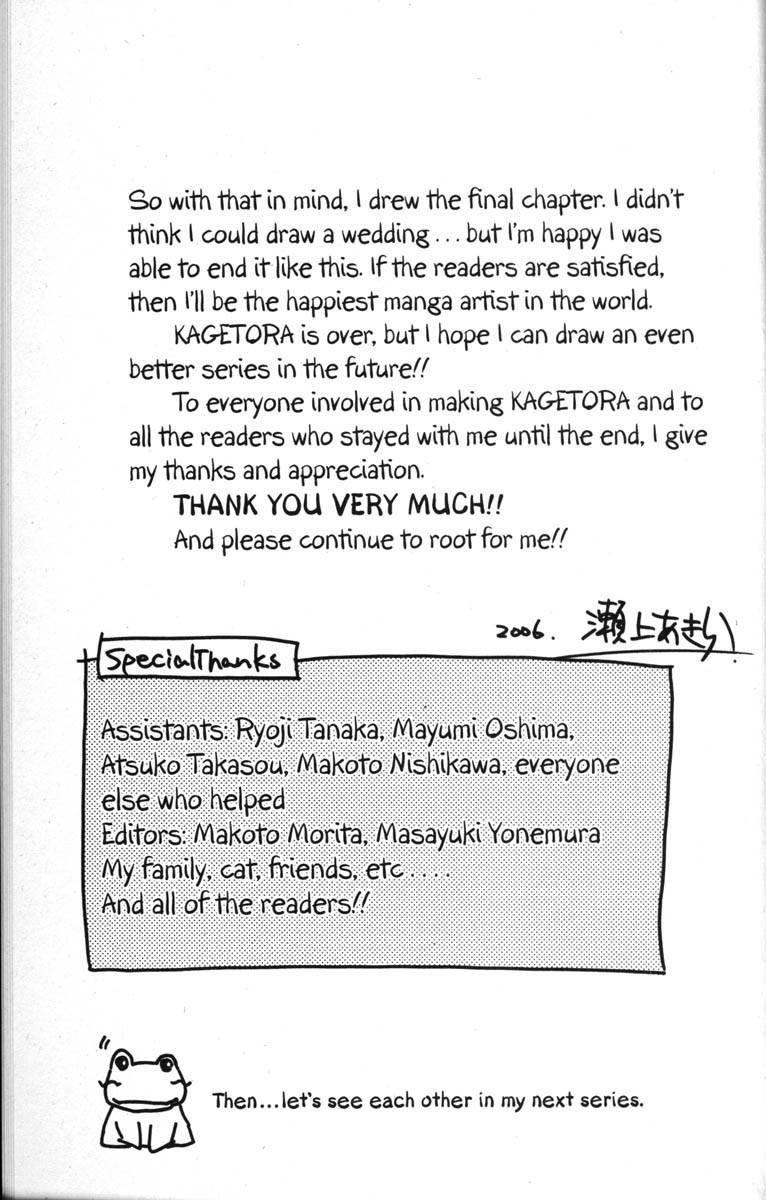 So with that in mind, I drew the final chapter. I didn't
think I could draw a wedding... but I'm happy I was
able to end it like this. If the readers are satisfied,
then I'll be the happiest manga artist in the world.
KAGETORA is over, but I hope I can draw an even
better series in the future!!
To everyone involved in making KAGETORA and to
all the readers who stayed with me until the end, I give
my thanks and appreciation.
THANK YOU VERY MUCH!!
And please continue to root for me!!
2006. 瀬上あきら
SpecialThanks
Assistants: Ryoji Tanaka, Mayumi Oshima,
Atsuko Takasou, Makoto Nishikawa, everyone
else who helped
Editors: Makoto Morita, Masayuki Yonemura
My family, cat, friends, etc....
And all of the readers!!
Then...let's see each other in my next series.